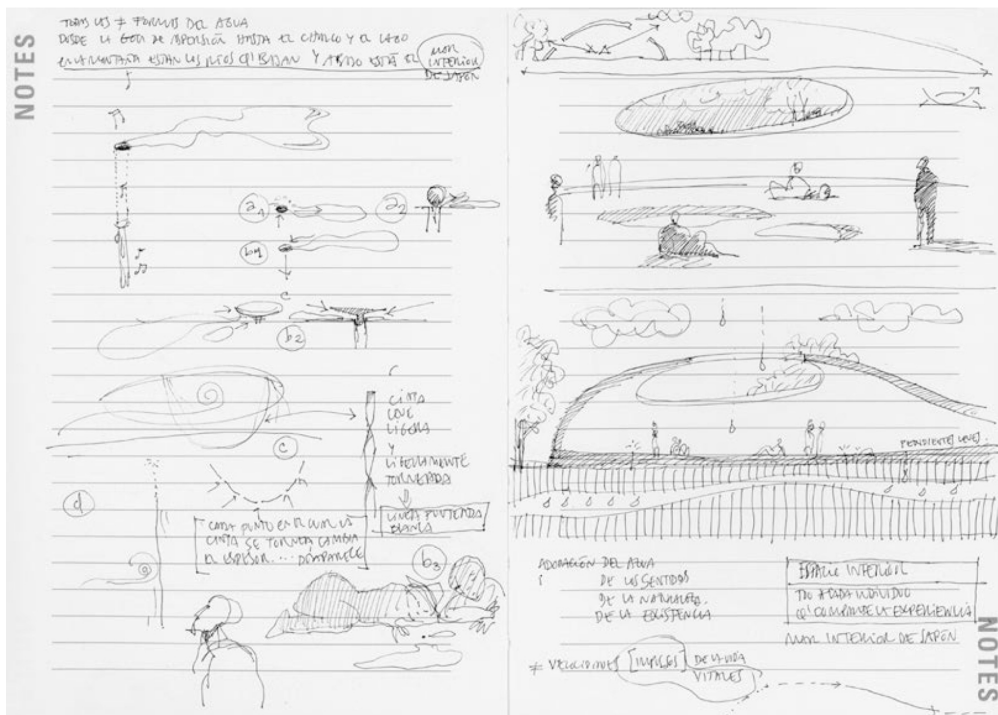 NOTES
TODAS LAS ≠ FORMAS DEL AGUA
DESDE LA GOTA DE ASPERSIÓN HASTA EL CHARCO Y EL LAGO
EN LA MONTAÑA ESTÁN LOS RÍOS Q' BAJAN Y ABAJO ESTÁ EL MAR
INTERIOR
DE JAPÓN
a1
a2
b1
c
b2
CINTA
LEVE
LIGERA
Y
LIBREMENTE
TORNEADA
LINEA PUNTEADA
BLANCA
c
d
CADA PUNTO EN EL CUAL LA
CINTA SE TORNEA CAMBIA
EL ESPESOR... DESAPARECE
b3
PENDIENTES LEVES
ADORACIÓN DEL AGUA
DE LOS SENTIDOS
DE LA NATURALEZA.
DE LA EXISTENCIA
ESPACIO INTERIOR
CADA INDIVIDUO
Q' COMPARTE LA EXPERIENCIA
MAR INTERIOR DE JAPÓN
≠ VELOCIDADES [IMPULSOS] DE LA VIDA
VITALES
NOTES